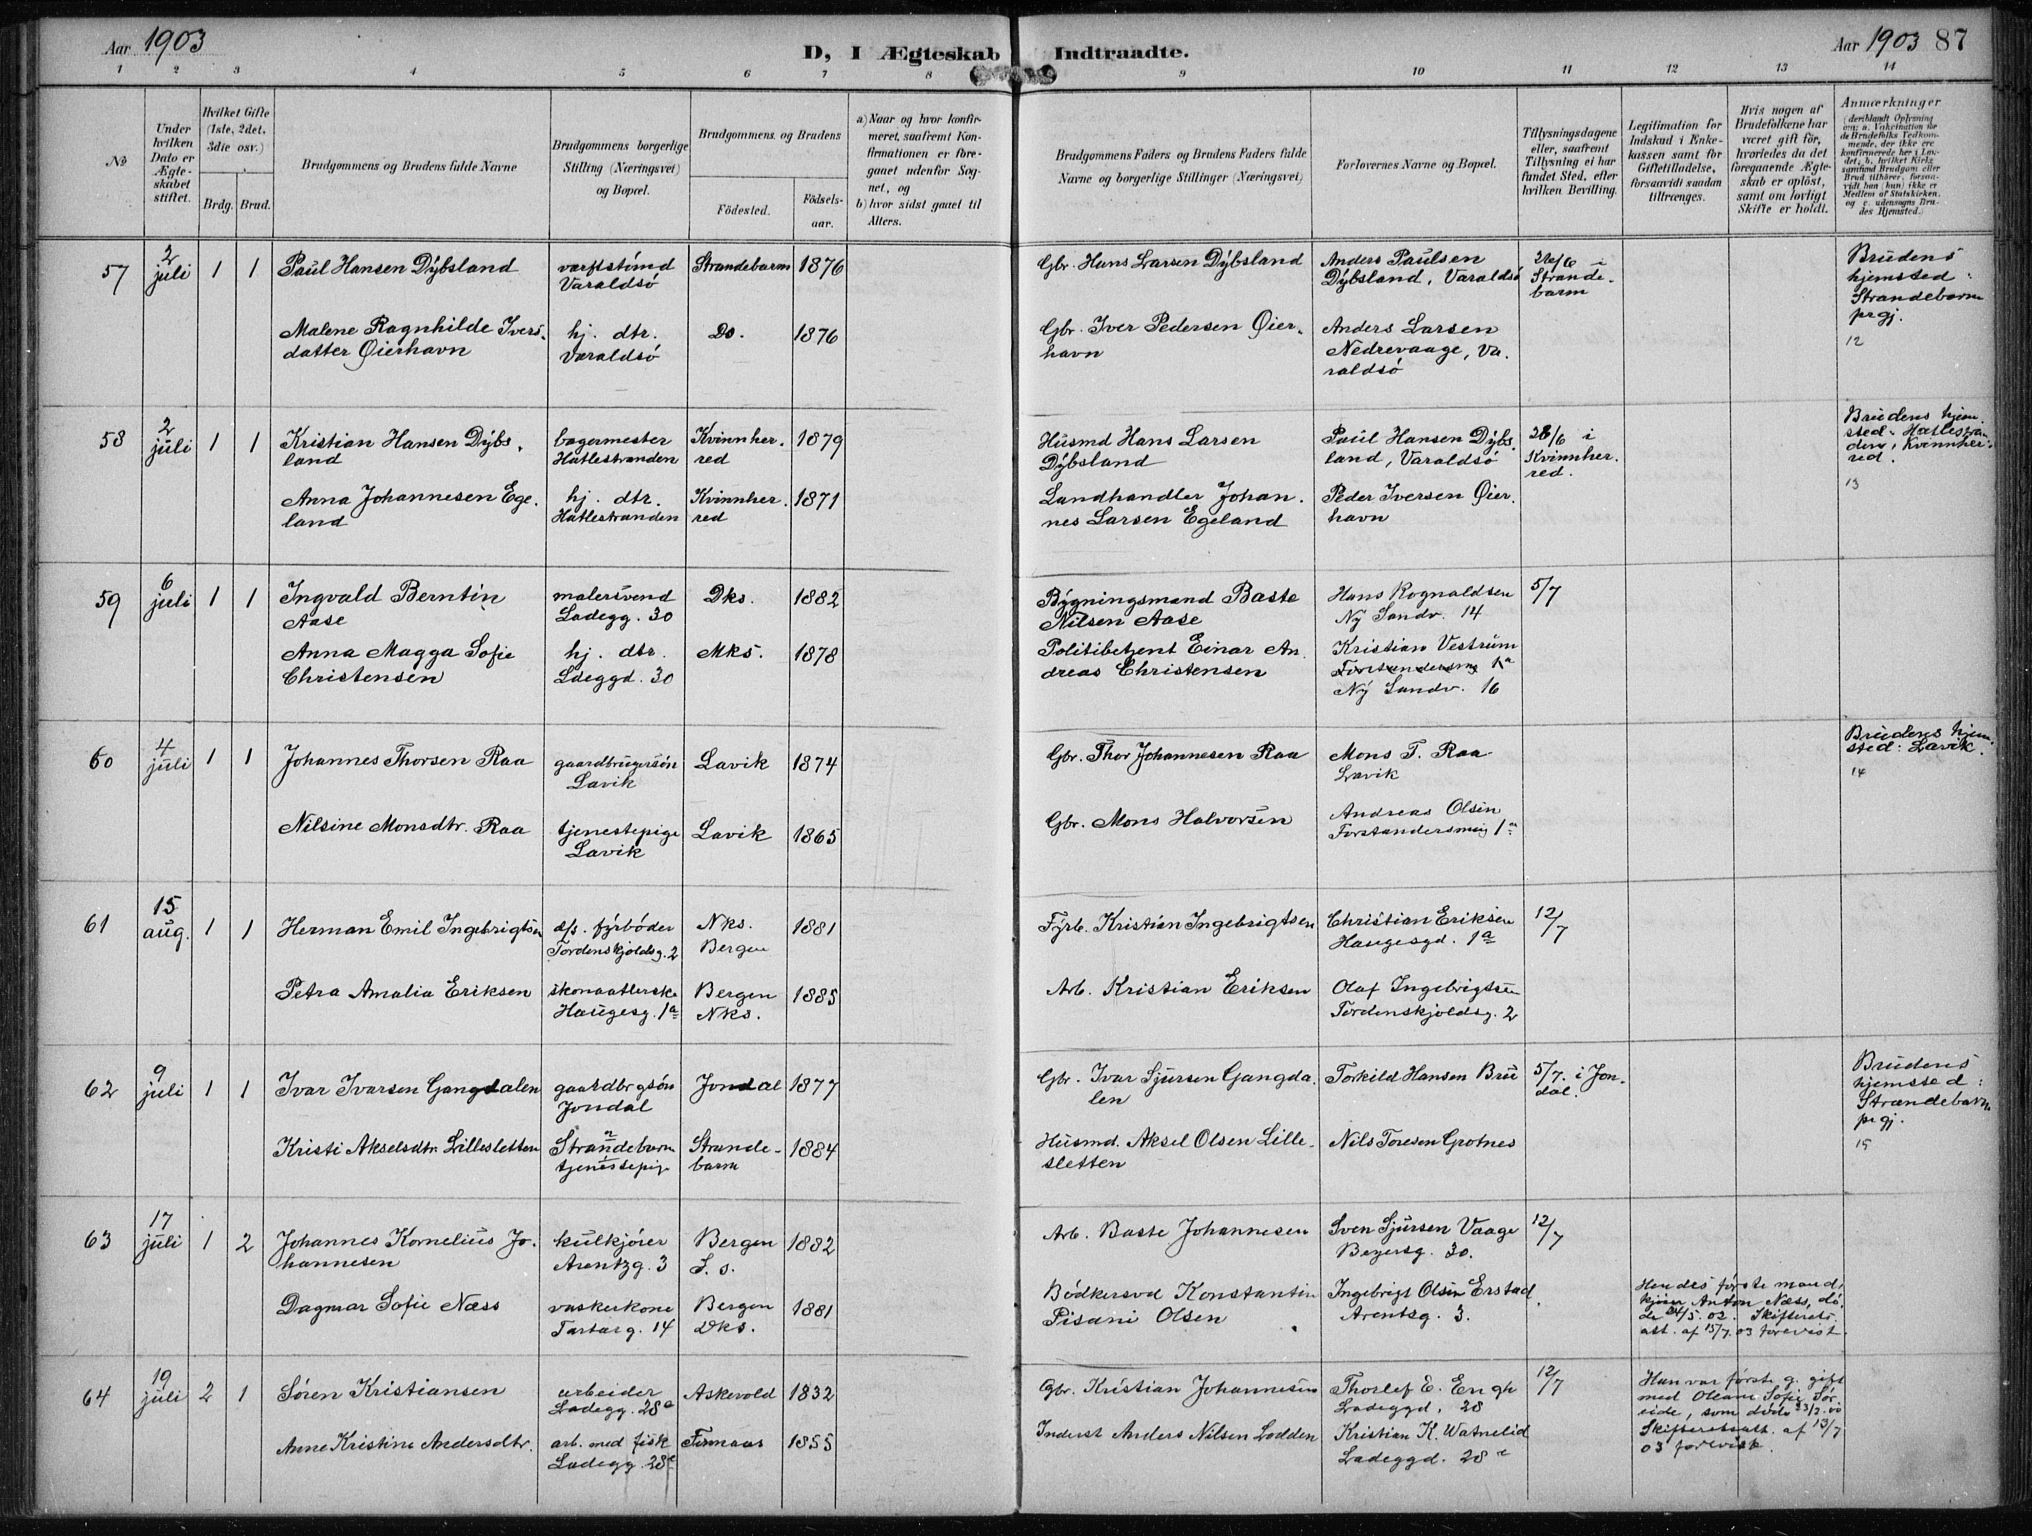 Aar 1903
D, I Ægteskab Indtraadte.
Aar 1903 87
1 2 3 4 5 6 7 8 9 10 11 12 13 14
No
Under hvilken Dato er Ægteskabet stiftet.
Hvilket Gifte (1ste, 2det, 3die osv.)
Brdg. Brud.
Brudgommens og Brudens fulde Navne
Brudgommens borgerlige Stilling (Næringsvei) og Bopæl.
Brudgommens og Brudens
Födested.
Födsels-aar.
a) Naar og hvor konfirmeret, saafremt Konfirmationen er foregaaet udenfor Sognet, og
b) hvor sidst gaaet til Alters.
Brudgommens Faders og Brudens Faders fulde Navne og borgerlige Stillinger (Næringsvei)
Forlovernes Navne og Bopæl.
Tillysningsdagene eller, saafremt Tillysning ei har fundet Sted, efter hvilken Bevilling.
Legitimation for Indskud i Enkekassen samt for Giftetilladelse, forsaavidt saadan tiltrænges.
Hvis nogen af Brudefolkene har været gift før, hvorledes da det foregaaende Ægteskab er opløst, samt om lovligt Skifte er holdt.
Anmærkninger
57 2 juli 1 1 Paul Hansen Dybsland
værftstømd Varaldsø
Strandebarm 1876
Gbr. Hans Larsen Dybsland
Anders Paulsen Dybsland, Varaldsø
i Strandebarm
Brudens hjemsted: Strandebarm prgj.
12
Malene Ragnhilde Iversdatter Øierhavn
hj. dtr. Varaldsø
Do. 1876
Gbr. Iver Pedersen Øierhavn
Anders Larsen Nedrevaage, Varaldsø
58 2 juli 1 1 Kristian Hansen Dybsland
bagermester Hatlestranden
Kvinnherred 1879
Husmd Hans Larsen Dybsland
Paul Hansen Dybsland, Varaldsø
28/6 i Kvinnherred.
Brudens hjemsted: Hatlestranden, Kvinnherred.
13
Anna Johannesen Egeland
hj. dtr. Hatlestranden
Kvinnherred 1871
Landhandler Johannes Larsen Egeland
Peder Iversen Øierhavn
59 6 juli 1 1 Ingvald Berntin Aase
malersvend Ladegg. 30
Dks. 1882
Bygningsmand Baste Nilsen Aase
Hans Rognaldsen Ny Sandv. 14
5/7
Anna Magga Sofie Christensen
hj. dtr. Ldeggd. 30
Mks. 1878
Politibetjent Einar Andreas Christensen
Kristian Vestrum Forstandersmg 1a
Ny Sandv. 16
60 4 juli 1 1 Johannes Thorsen Raa
gaardbrugersøn Lavik
Lavik 1874
Gbr. Thor Johannesen Raa
Mons T. Raa Lavik
Brudens hjemsted: Lavik.
14
Nilsine Monsdtr. Raa
tjenestepige Lavik
Lavik 1865
Gbr. Mons Halvorsen
Andreas Olsen Forstandersmg 1a
61 15 aug. 1 1 Herman Emil Ingebrigtsen
dfs. fyrbøder Tordenskjoldsg. 2
Nks. Bergen 1881
Fyrb. Kristian Ingebrigtsen
Christian Eriksen Haugesgd. 1a
12/7
Petra Amalia Eriksen
skonaatlerske Haugesg. 1a
Bergen Nks. 1885
Arb. Kristian Eriksen
Olaf Ingebrigtsen Tordenskjoldsg. 2
62 9 juli 1 1 Ivar Ivarsen Gangdalen
gaardbrgsøn Jondal
Jondal 1877
Gbr. Ivar Sjursen Gangdalen
Torkild Hansen Bru
5/7. i Jondal.
Brudens hjemsted: Strandebarm prgj.
15
Kristi Akselsdtr. Lillesletten
Strandebarm tjenestepige
Strandebarm 1884
Husmd. Aksel Olsen Lillesletten
Nils Toresen Grotnes
63 17 juli 1 2 Johannes Kornelius Johannesen
kulkjører Arentzg. 3
Bergen S. s. 1882
Arb. Baste Johannesen
Sven Sjursen Vaage Beyersg. 30.
12/7
Dagmar Sofie Næss
vaskerkone Tartarg. 14
Bergen Dks. 1881
Bødkersvd Konstantin Pisani Olsen
Ingebrigt Olsen Erstad Arentsg. 3.
Hendes første mand, kjører Anton Næss, døde 24/5. 02. Skifteretsatt. af 15/7. 03 forevist.
64 19 juli 2 1 Søren Kristiansen
arbeider Ladegg. 28
Askevold 1832
Gbr. Kristian Johannesen
Thorlef E. Engh Ladeggd. 28
12/7
Han var første g. gift med Oleane Sofie Sørside, som døde
Skifteretsatt. af 13/7 03 forevist.
Anne Kristine Andersdtr.
arb. med fisk Ladegg. 28
Finnaas 1855
Inderst Anders Nilsen Lodden
Kristian K. Watnelid Ladeggd. 28